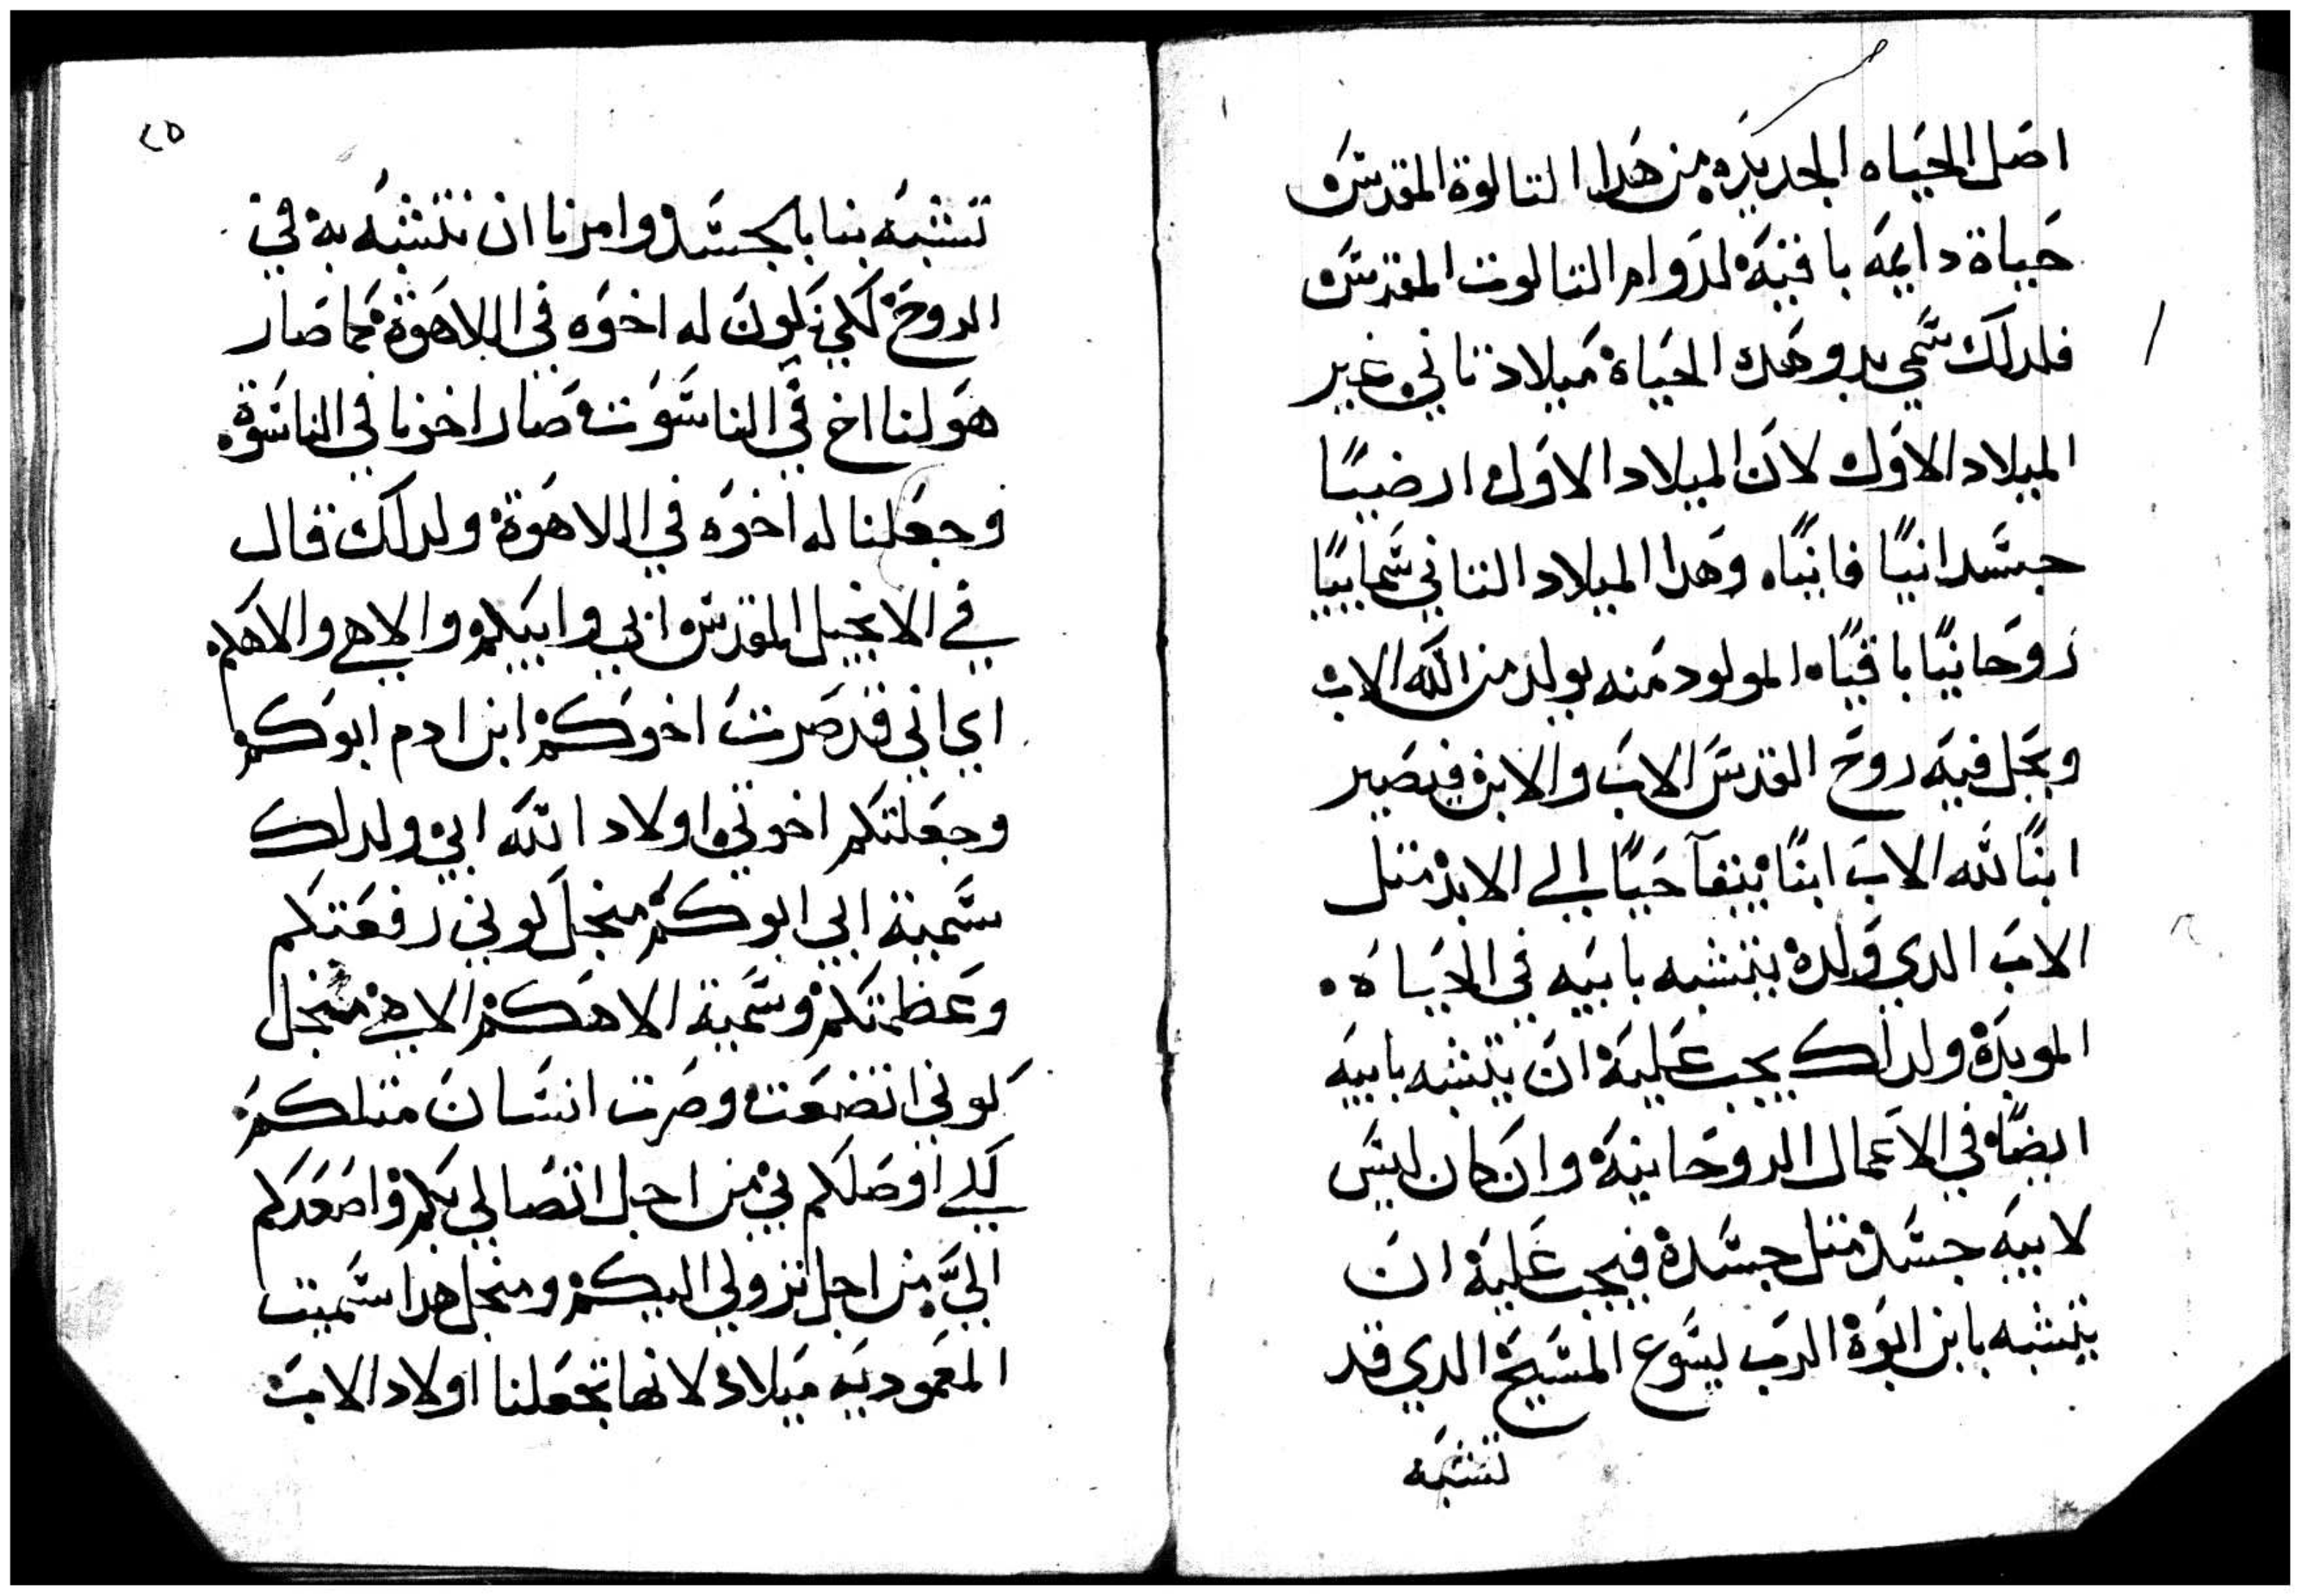 اصل الحياه الجديده من هدا التالوة المقدس
حياة دايمه باقيه لدوام التالوت المقدس
فلدلك سمي بدو هده الحياة ميلاد تاني غير
الميلاد الاول لان الميلاد الاول ارضيًا
جسدانيًا فانيًا وهدا الميلاد التاني سماييًا
روحانيًا باقيًا المولود منه يولد من الله الاب
ويحل فيه روح القدس الاب والابن فيصير
ابنًا لله الاب ابنًا يبقآ حيًا الي الابد متل
الاب الدي ولده يتشبه بابيه في الحياه
الموبده ولدلك يجب عليه ان يتشبه بابيه
ايضًا في الاعمال الروحانيه وان كان ليس
لابيه جسد متل جسده فيجب عليه ان
يتشبه بابن ابوه الرب يسوع المسيح الدي قد
تشبه
٢٥
تشبه بنا بالجسد وامرنا ان نتشبه به في
الروح لكي نكون له اخوه في اللاهوة كما صار
هو لنا اخ في الناسوت صار اخونا في الناسوة
وجعلنا له اخوه في اللاهوة ولدلك قال
في الانجيل المقدس ابي وابيكم والاهي والاهكم
اي اني قد صرت اخوكم ابن ادم ابوكم
وجعلتكم اخوتي اولاد الله ابي ولدلك
سميته ابي ابوكم منجل لوني رفعتكم
وعظمتكم وسميته الاهكم الاهي منجل
كوني اتضعت وصرت انسان متلكم
لكي اوصلكم بي من اجل اتصالي بكم واصعدكم
اليّ من اجل نزولي اليكم ومنجل هدا سميت
المعموديه ميلاد لانها تجعلنا اولاد الاب